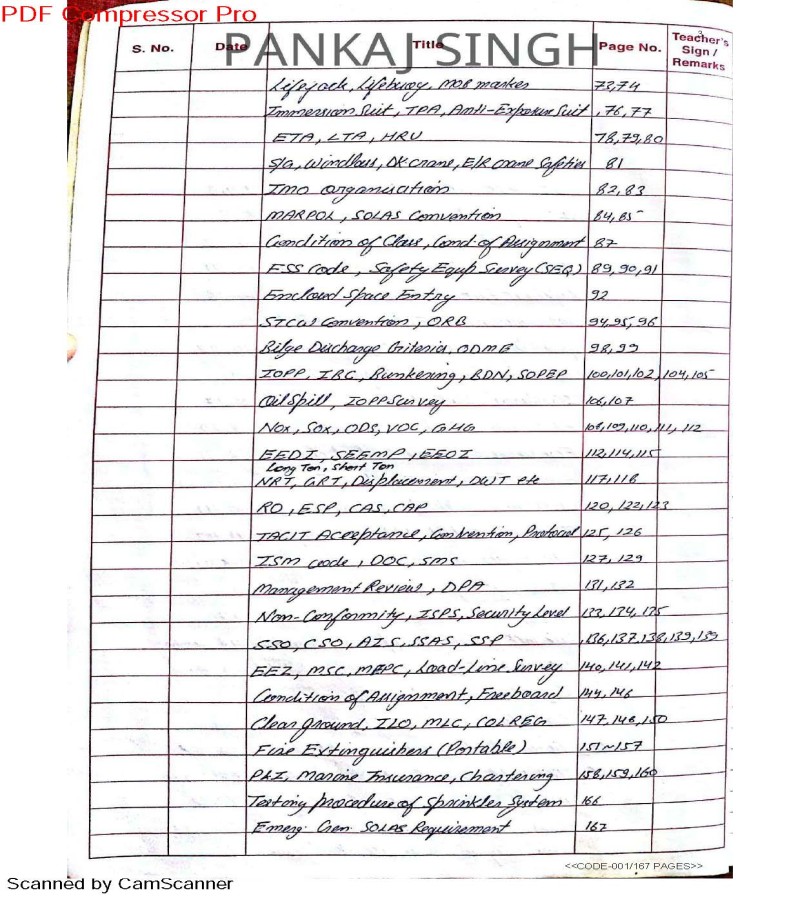 PDF Compressor Pro
PANKAJ SINGH
S. No. Date Title Page No. Teacher's Sign / Remarks
Lifejack, Lifebuoy, MOB marker 73,74
Immersion Suit, TPA, Anti-Exposure Suit ,76,77
ETA, LTA, HRU 78,79,80
S/G, Windlass, DK crane, E/R crane Safeties 81
IMO Organisation 82,83
MARPOL, SOLAS Convention 84,85
Condition of Class, Cond of Assignment 87
FSS Code, Safety Equp Survey (SEQ) 89,90,91
Enclosed Space Entry 92
STCW Convention, ORB 94,95,96
Bilge Discharge Criteria, ODME 98,99
IOPP, IBC, Bunkering, BDN, SOPEP 100,101,102,104,105
Oil Spill, IOPP Survey 106,107
NOx, SOx, ODS, VOC, GHG 108,109,110,111,112
EEDI, SEEMP, EEOI 112,114,115
Long Ton, Short Ton
NRT, GRT, Displacement, DWT etc 117,118
RO, ESP, CAS, CAP 120,122,123
TACIT Acceptance, Convention, Protocol 125,126
ISM code, DOC, SMS 127,129
Management Review, DPA 131,132
Non-Conformity, ISPS, Security Level 133,134,135
SSO, CSO, AIS, SSAS, SSP ,136,137,138,139,139
EEZ, MSC, MEPC, Load-Line Survey 140,141,142
Condition of Assignment, Freeboard 144,146
Clear ground, ILO, MLC, COLREG 147,148,150
Fire Extinguishers (Portable) 151~157
P&I, Marine Insurance, Chartering 158,159,160
Testing procedure of Sprinkler System 166
Emerg. Gen. SOLAS Requirement 167
<<CODE-001/167 PAGES>>
Scanned by CamScanner